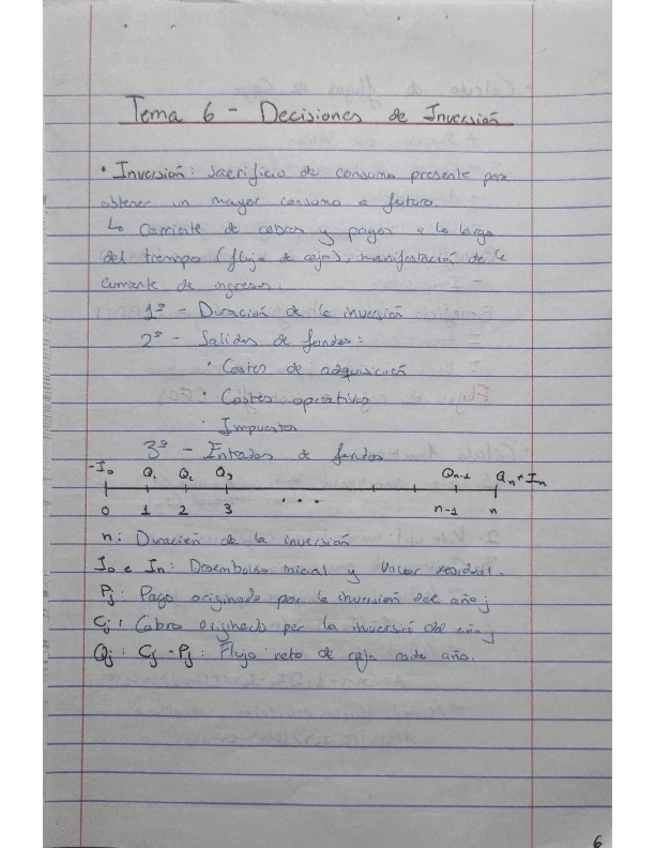 Tema 6 - Decisiones de Inversión
• Inversión: sacrificio de consumo presente para
obtener un mayor consumo a futuro.
↳ Corriente de cobros y pagos a lo largo
del tiempo (flujo de caja), manifestación de la
corriente de ingresos:
1º - Duración de la inversión
2º - Salidas de fondos:
· Costes de adquisición
· Costes operativos
· Impuestos
3º - Entradas de fondos
-I₀ Q₁ Q₂ Q₃ Qn-1 Qn + In
0 1 2 3 ... n-1 n
n: Duración de la inversión
I₀ e In: Desembolso inicial y valor residual.
Pj: Pago originado por la inversión del año j
Cj: Cobro originado por la inversión del año j
Qj: Cj - Pj: Flujo neto de caja cada año.
6